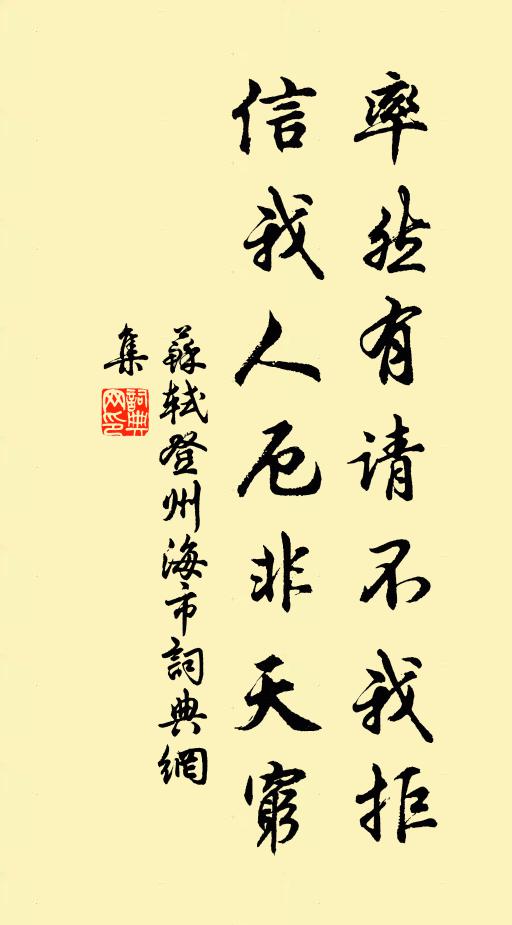 率然有请不我拒
信我人厄非天窮
蘇軾登州海市詞典網
集
詞典網印